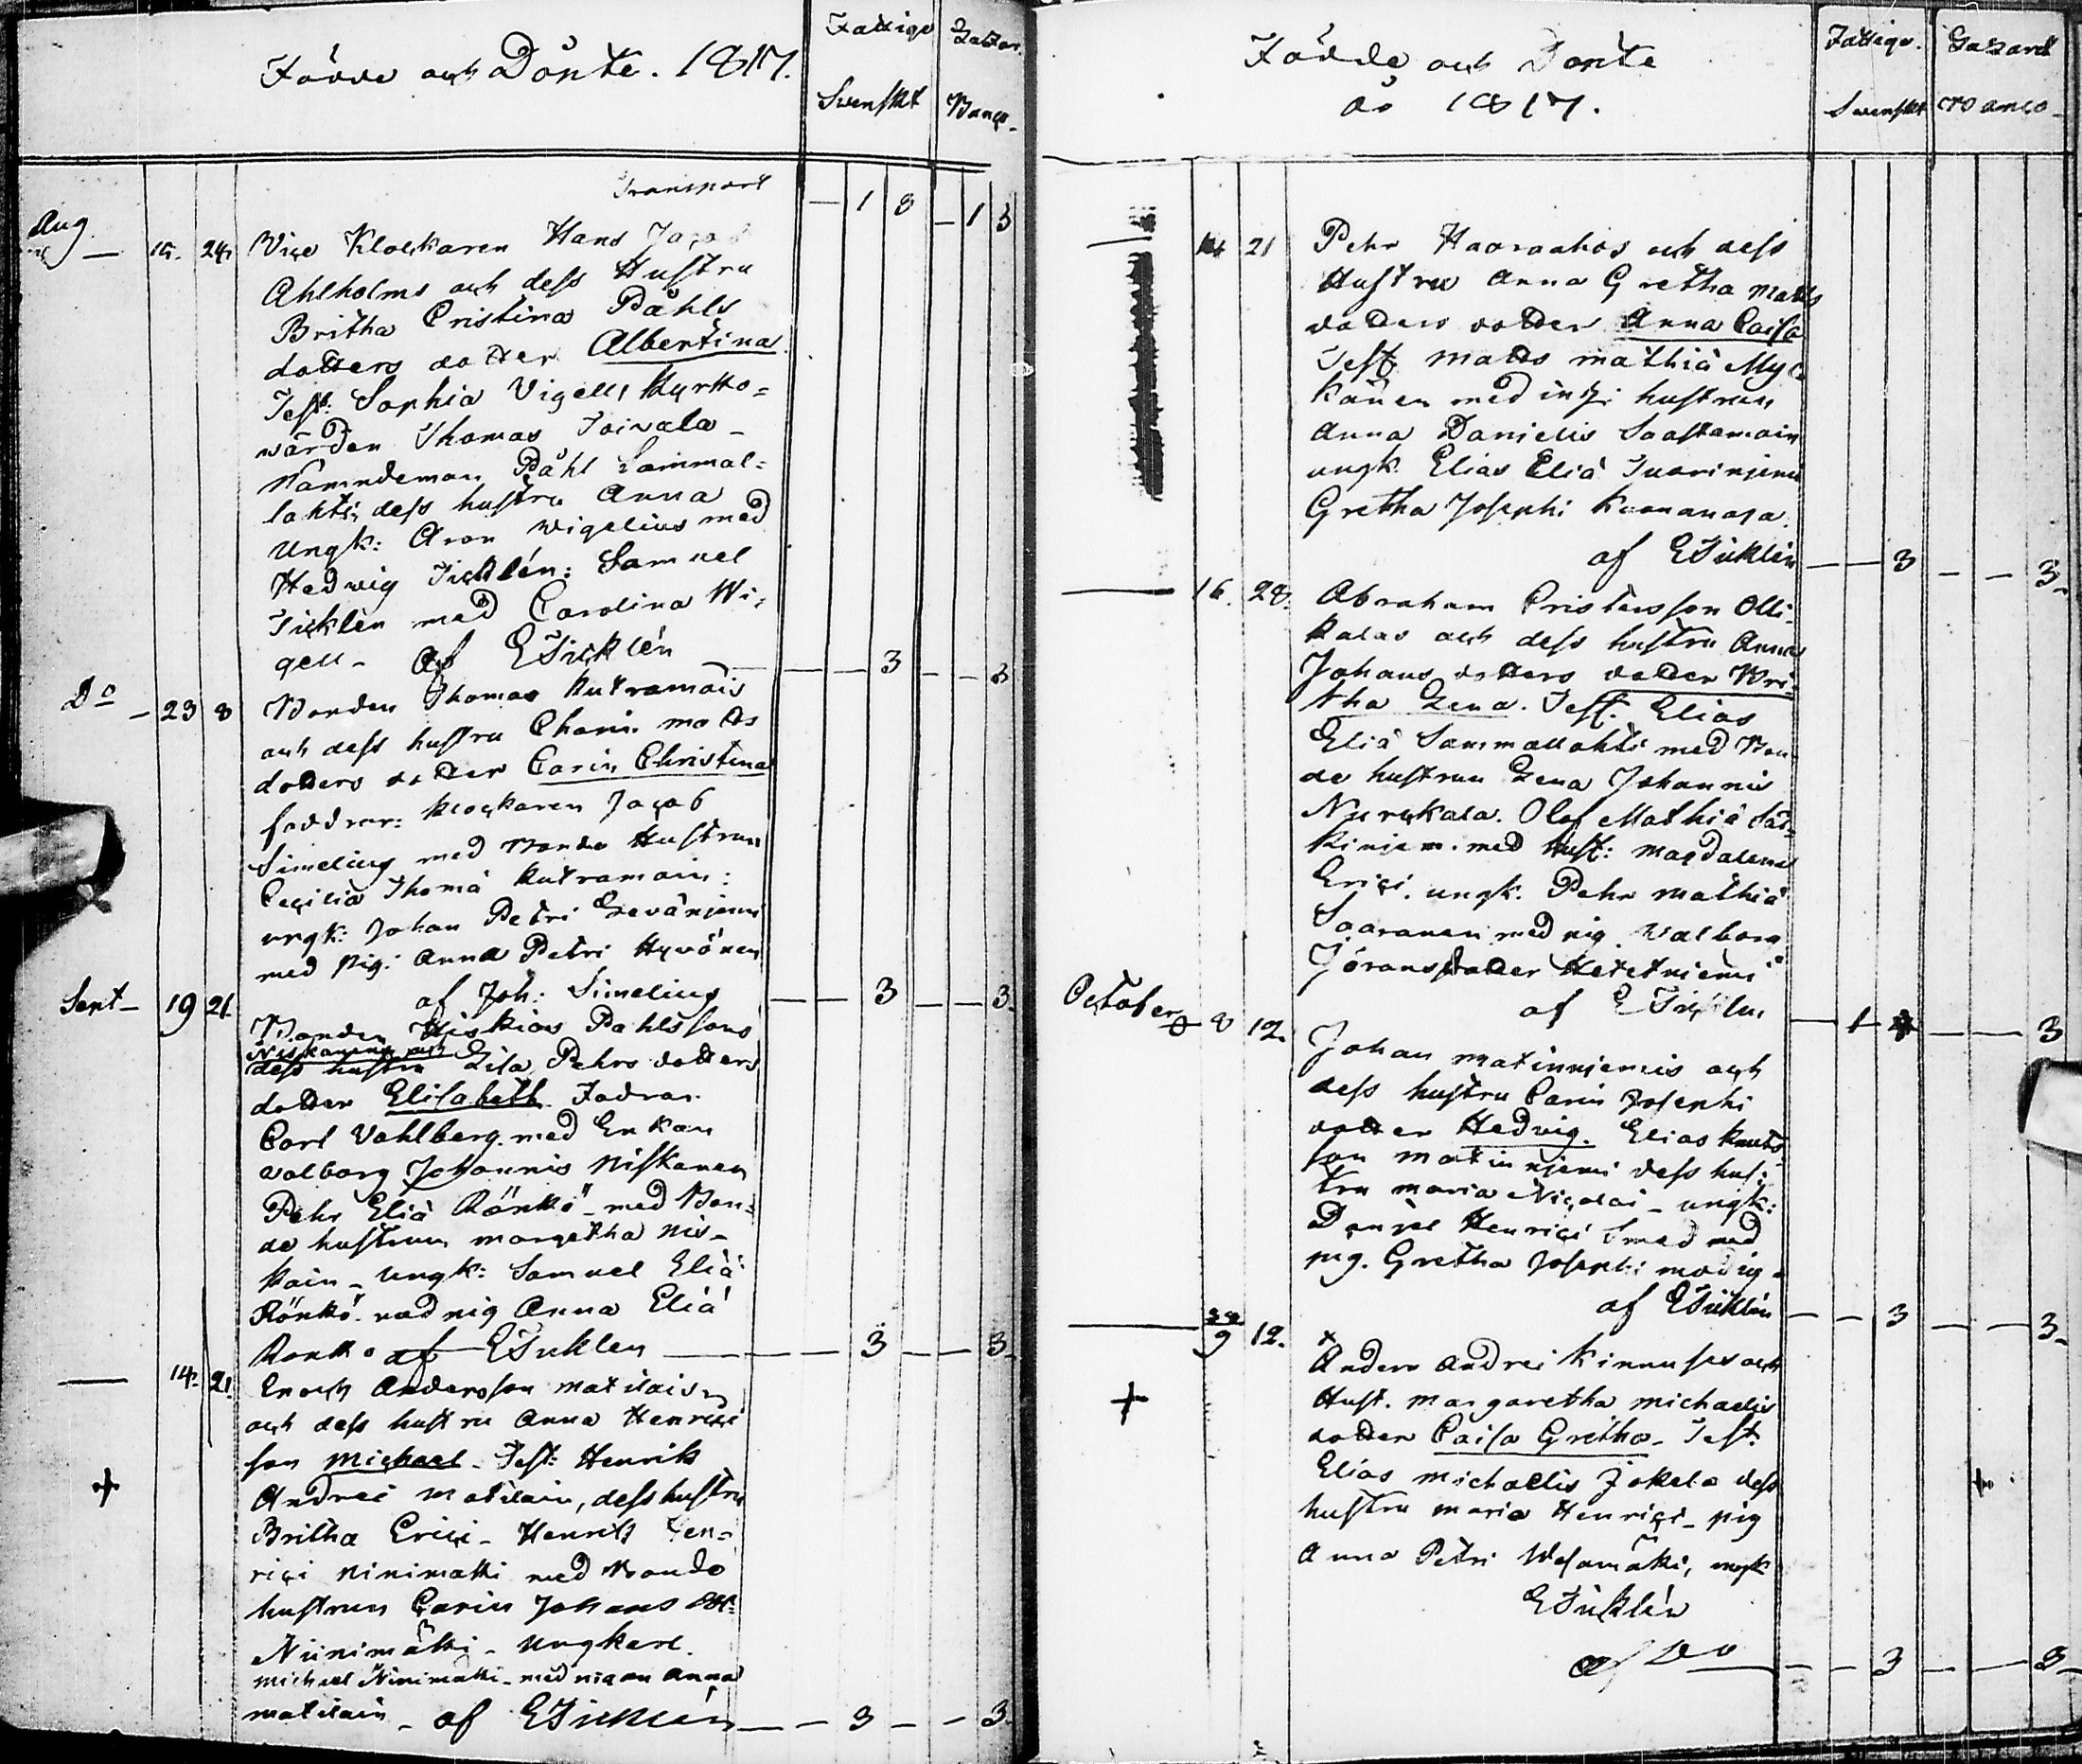 Födde och Döpte. 1817.
Fattige
Svenskt
Lazar.
Banco
Transport
1 8 1 3
Aug 15. 24. Vice Klockaren Hans Jacob
Ahlholms och dess Hustru
Britha Cristina Påhls
dotters dotter Albertina
Test: Sophia Vigell, Kyrko=
wärden Thomas Toivala
Nämndeman Påhl Sammal=
lahti, dess hustru Anna
Ungk: Aron Wigelius med
Hedwig Ticklén: Samuel
Ticklén med Carolina Wi=
gell - af ETicklén 3 3
Do 23 8 Bonden Thomas Kutramois
och dess hustru Charin Matts
dotters dotter Carin Christina
faddrar: Klockaren Jacob
Simelius med Bonde Hustrun
Cecilia Thomä Kutramoin:
ungk: Johan Petri
med pig: Anna Petri Hyvönen
af Joh: Simelius 3 3
Sept 19 21 Bonden Hiskias Påhlssons
Niskanens och
dess hustru Lisa Pehrs dotters
dotter Elisabeth. Fadrar
Carl Vahlberg med Enkan
Valborg Johannis Niskanen
Pehr Eliä Rönkö - med Bon=
de hustrun Margetha Nis=
kain - Ungk: Samuel Eliä
Rönkö med pig Anna Eliä
Rönkö af ETicklén 3 3
14. 21. Enoch Andersson Matilais
och dess hustru Anna Henrici
son Michael - Test: Henrik
Andrei Matilain, dess hustru
Britha Erici - Henrik Hen=
rici Ninimäki med Bonde
hustrun Carin Johans
Niinimäki - Ungkarl
Michael Ninimäki - med pigan Anna
Matilain - af ETicklén 3 3
Födde och Döpte
år 1817.
Fattige.
Svenskt
Lazaret
Banco
14 21 Pehr Haaraahos och dess
Hustru Anna Gretha Matts
dotters dotter Anna Caisa
Test Matts Mathiä Myc
känen med inh: hustrun
Anna Danielis Saastamoin
ungk. Elias Eliä
Gretha Josephi
af ETicklén 3 3
16. 28. Abraham Cristersson Olli=
kalas och dess hustru Anna
Johans dotters dotter Bri=
tha Lena. Test: Elias
Eliä Sammallahti med Bon
de hustrun Lena Johannis
Nurckala. Olof Mathiä Sär
kinjem. med Hust: Magdalena
Erici. ungk. Pehr Mathiä
Saaranen med pig Walborg
Jöransdotter Hetetniemi
af ETicklén 1 3
October 8 12. Johan Matinnjemis och
dess hustru Carin Josephi
dotter Hedvig. Elias Knuts
son Matinnjemi dess hus=
tru Maria Nicolai - ungk:
Danjel Henrici Smed med
pig. Gretha Josephi Modig
af ETicklén 3 3
9 12. Anders Andrei Kinnuses och
Hust. Margaretha Michaelis
dotter Caisa Gretha - Test.
Elias Michaelis Jokela dess
hustru Maria Henrici - pig
Anna Petri Wesamäki, ungk
ETicklén
af Do 3 3